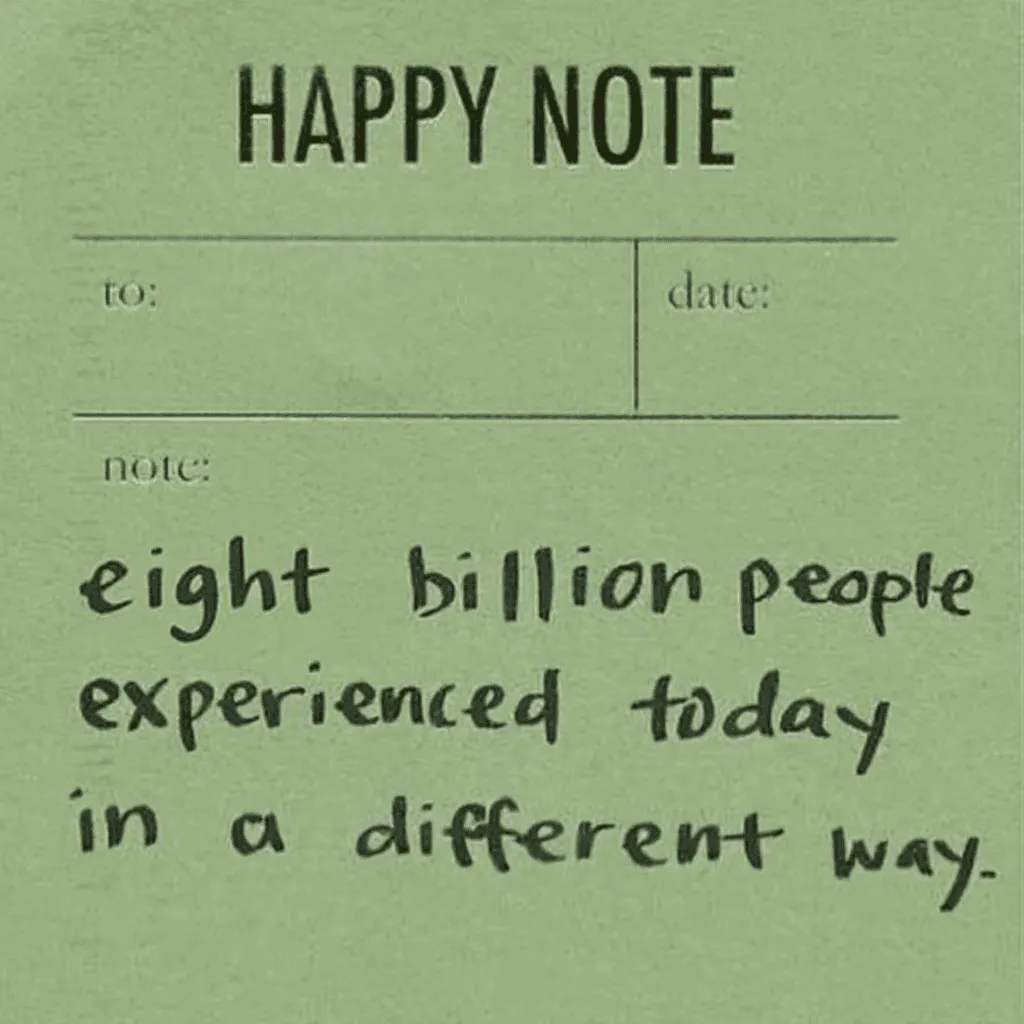 HAPPY NOTE
to:
date:
note:
eight billion people
experienced today
in a different way.